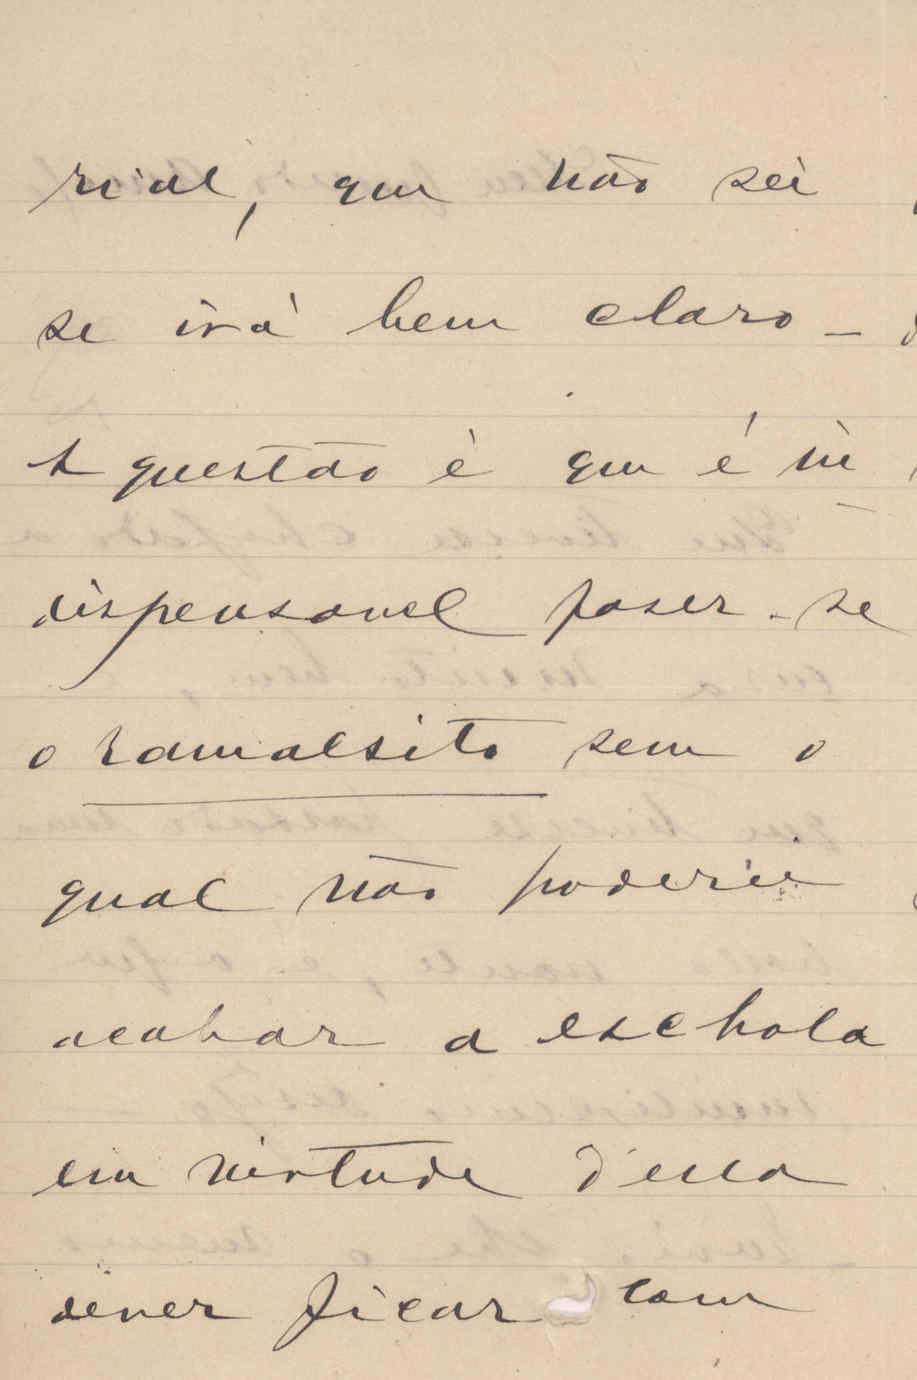 rial, que não sei
se irá bem claro —
A questão é que é in
dispensavel faser-se
o ramalsito sem o
qual não poderei
acabar a eschola
em virtude d'ella
dever ficar com